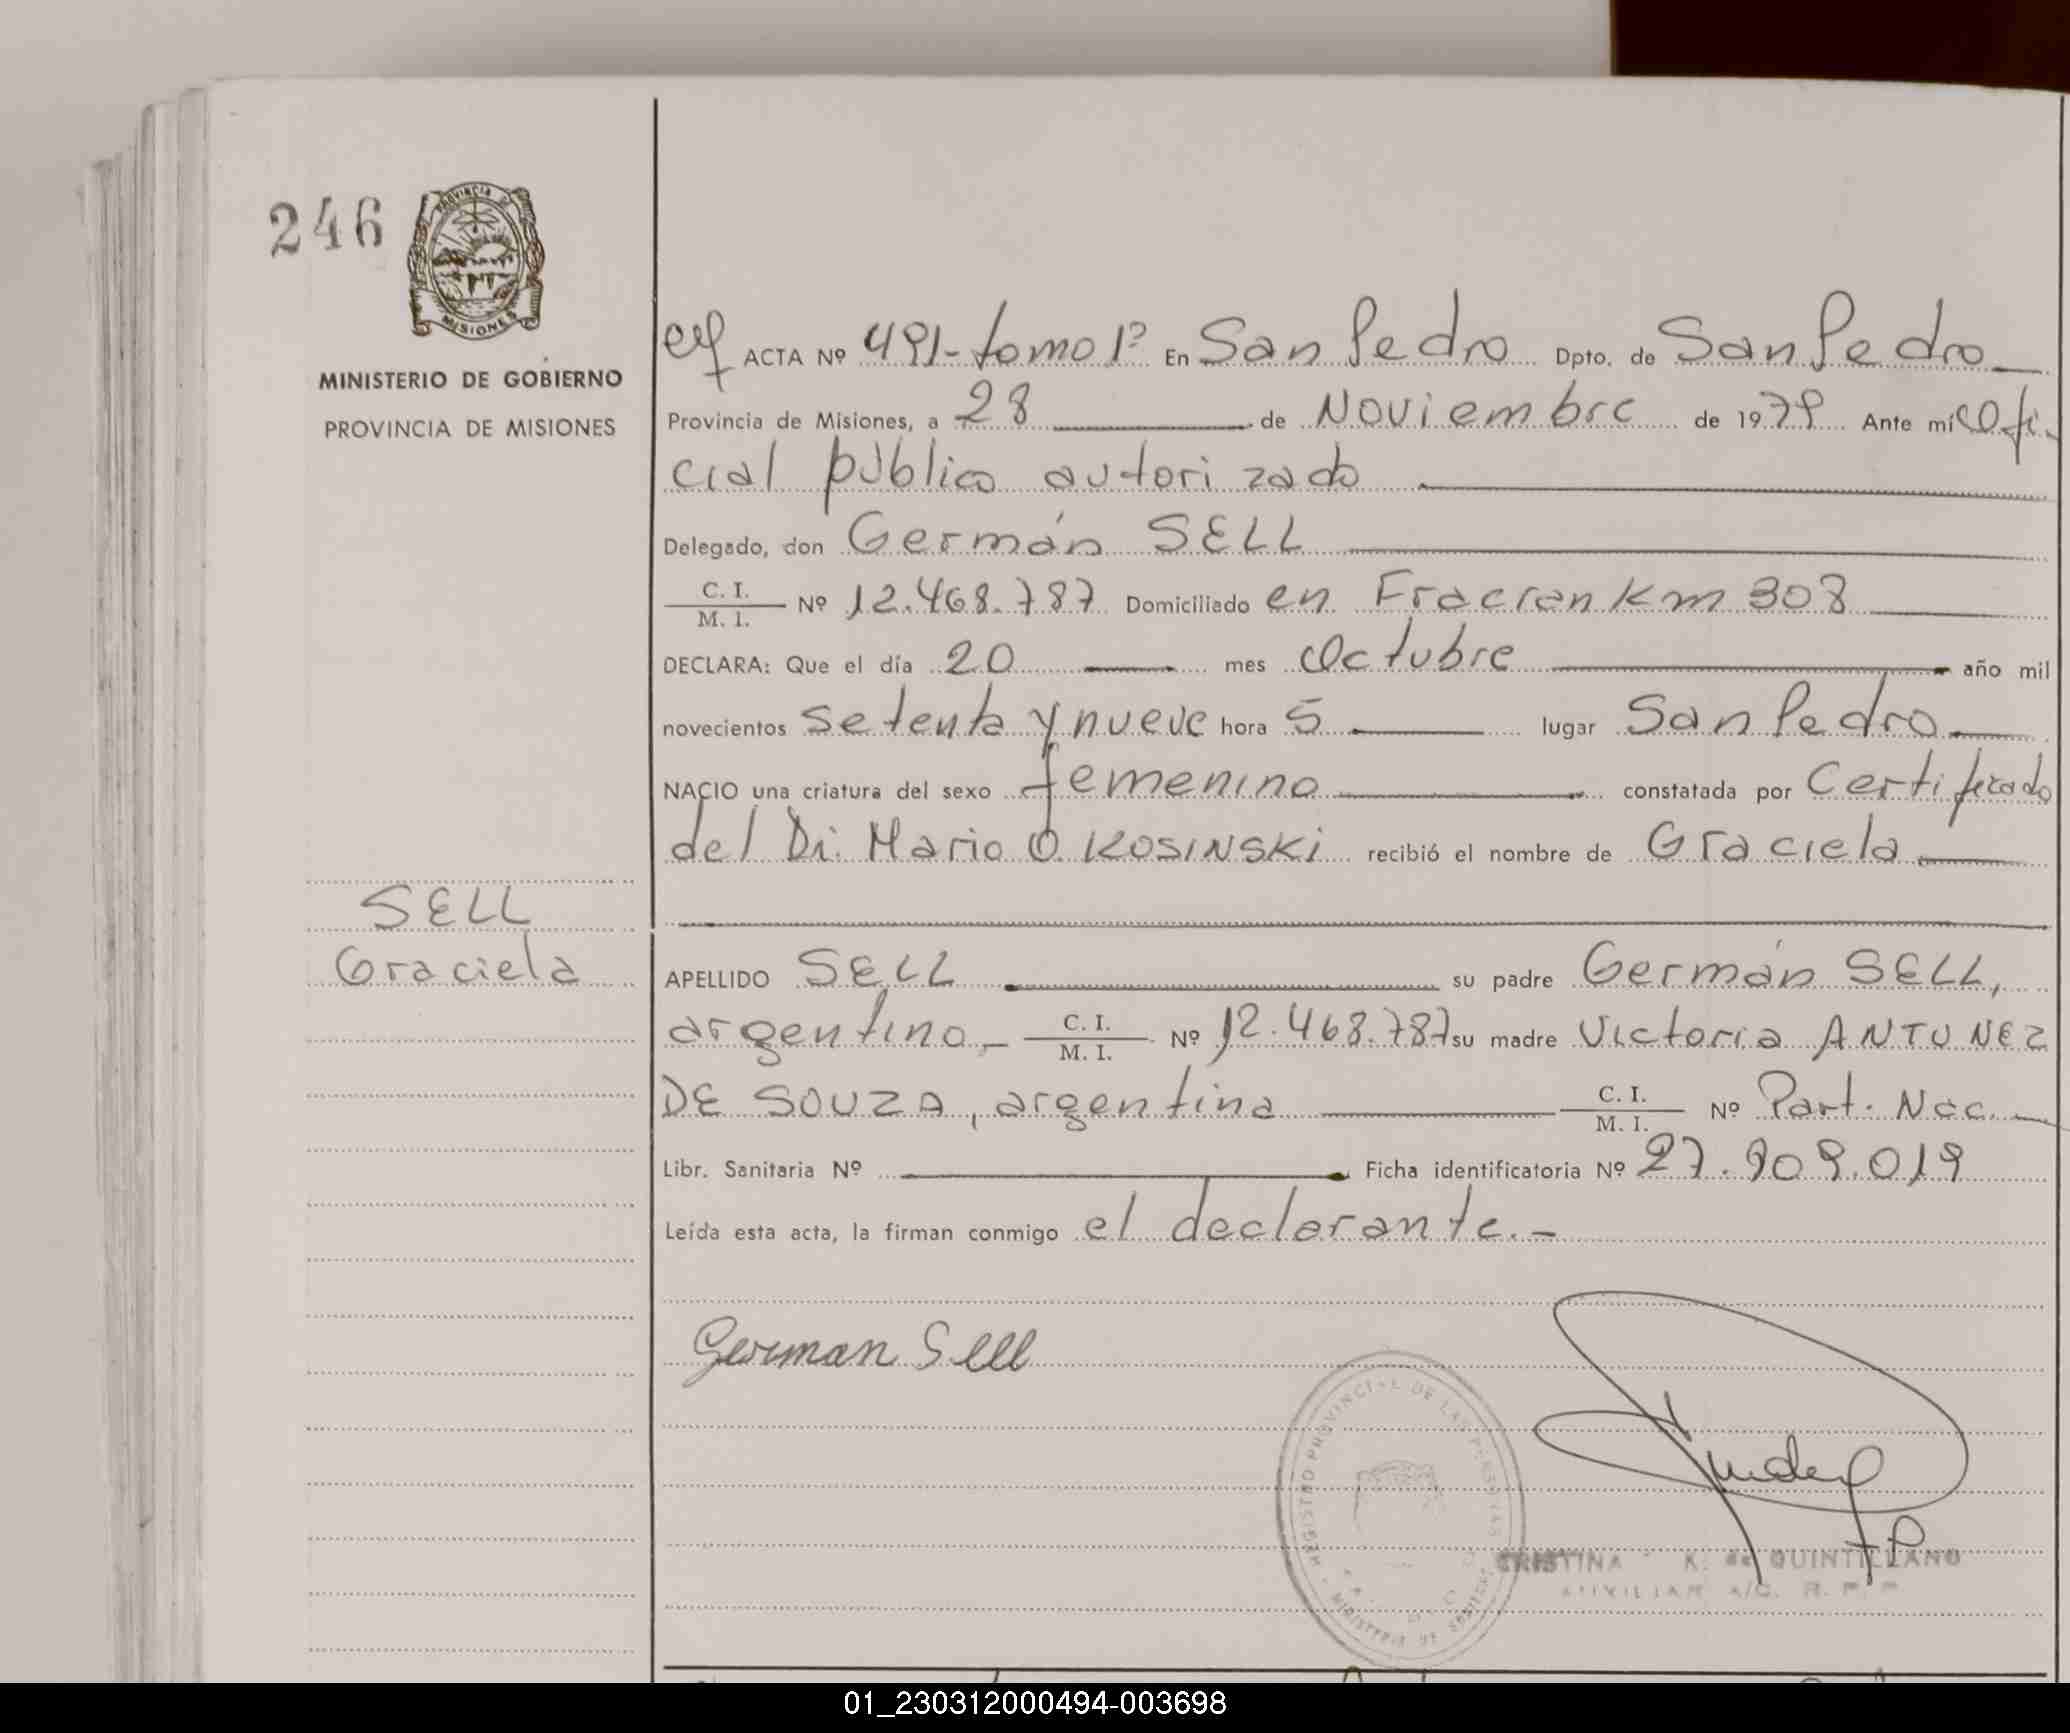 246
PROVINCIA D
MISIONES
MINISTERIO DE GOBIERNO
PROVINCIA DE MISIONES
ACTA Nº 491-tomo 1º En San Pedro Dpto. de San Pedro
Provincia de Misiones, a 28 de Noviembre de 1979 Ante mí Ofi-
cial público autorizado
Delegado, don Germán SELL
C. I.
M. I. Nº 12.468.787 Domiciliado en Fracran Km 308
DECLARA: Que el día 20 mes Octubre año mil
novecientos setenta y nueve hora 5 lugar San Pedro
NACIO una criatura del sexo femenino constatada por Certificado
del Dr. Mario O. KOSINSKI recibió el nombre de Graciela
SELL
Graciela
APELLIDO SELL su padre Germán SELL,
argentino - C. I.
M. I. Nº 12.468.787 su madre Victoria ANTUNEZ
DE SOUZA, argentina C. I.
M. I. Nº Part. Nac.
Libr. Sanitaria Nº Ficha identificatoria Nº 27.909.019
Leída esta acta, la firman conmigo el declarante.-
German Sell
REGISTRO PROVINCIAL DE LAS PERSONAS
CRISTINA K. de QUINTILLANO
AUXILIAR A/C. R. P. P.
01_230312000494-003698